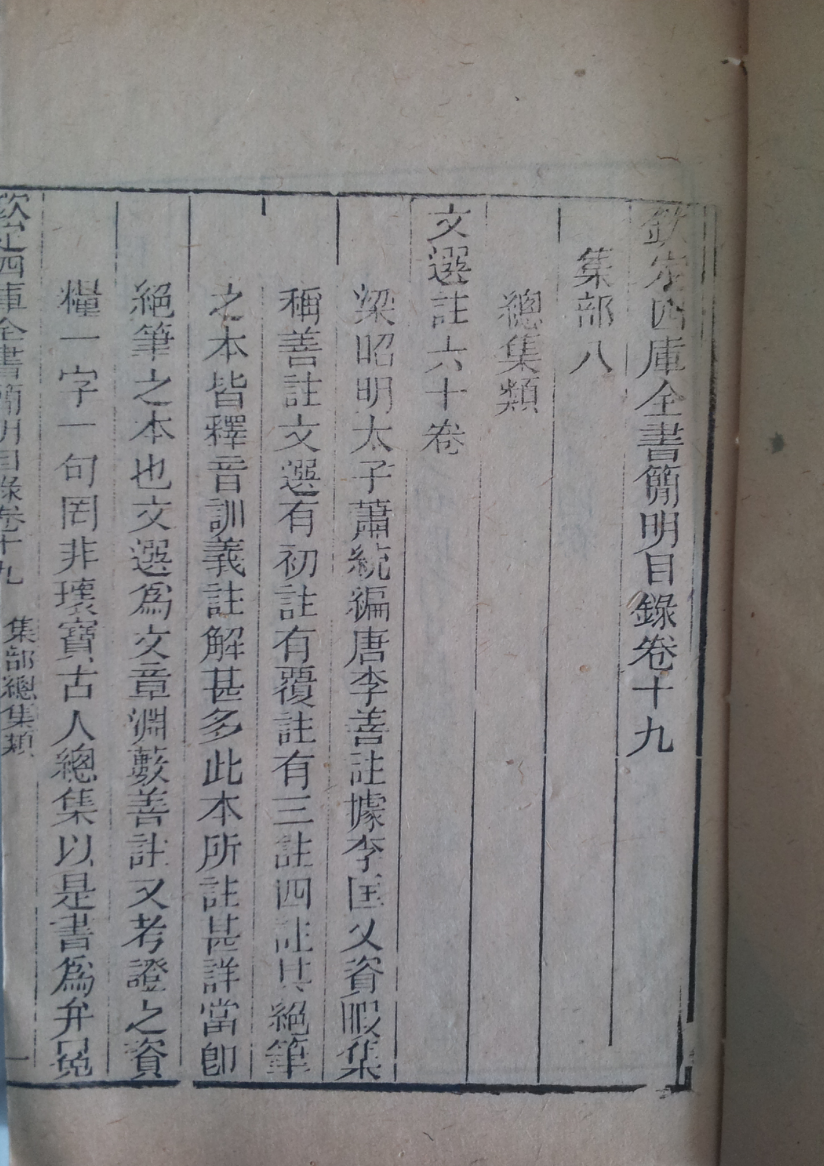 欽定四庫全書簡明目錄卷十九
集部八
總集類
文選註六十卷
梁昭明太子蕭統編唐李善註據李匡乂資暇集
稱善註文選有初註有覆註有三註四註其絕筆
之本皆釋音訓義註解甚多此本所註甚詳當即
絕筆之本也文選為文章淵藪善註又考證之資
糧一字一句罔非瓌寶古人總集以是書為弁冕
欽定四庫全書簡明目錄卷十九 集部總集類 一